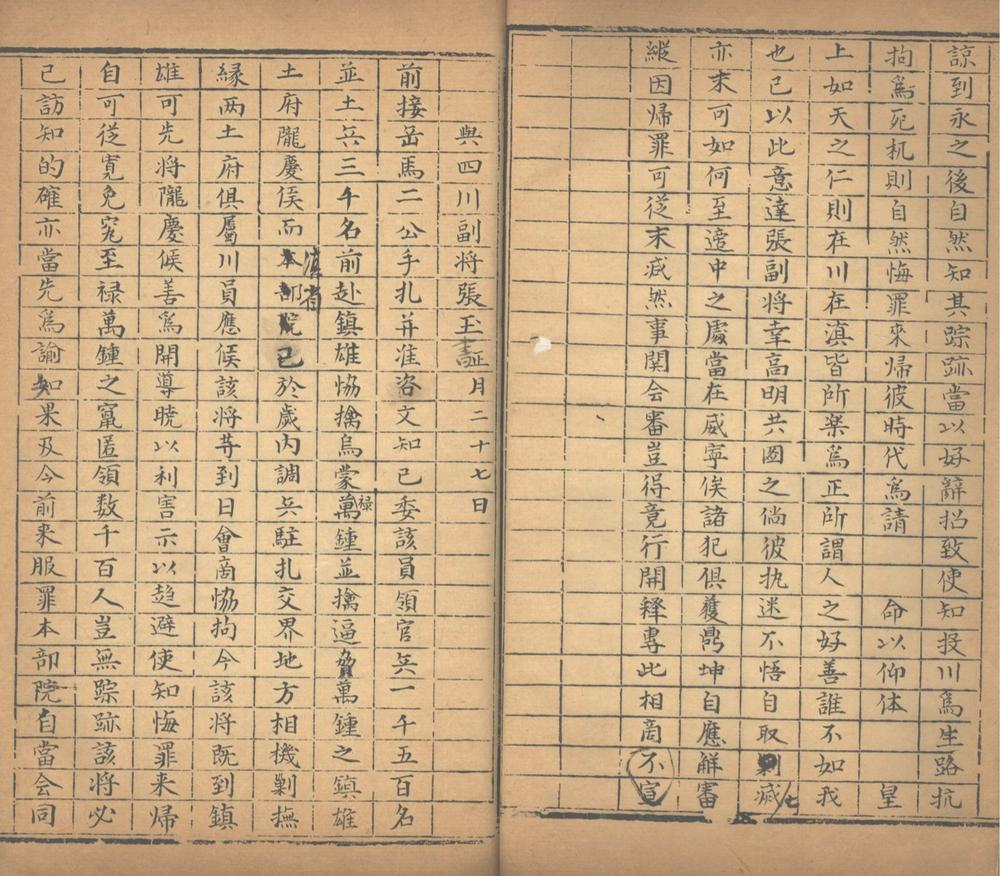 諒到永之後自然知其踪跡當以好辭招致使知投川爲生路抗
拘爲死机則自然悔罪來帰彼時代爲請命以仰体皇
上如天之仁則在川在滇皆所楽爲正所謂人之好善誰不如我
也已以此意達張副将幸高明共圖之倘彼执迷不悟自取剿滅
亦末可如何至遼中之處當在威寧俟諸犯俱獲鹍坤自應觧審
縦因帰罪可從末减然事関会審豈得竟行開释專此相商不宣
與四川副将張玉書正月二十七日
前接岳馬二公手扎并准咨文知已委該員領官兵一千五百名
並土兵三千名前赴鎮雄恊擒烏蒙禄萬鍾並擒逼脅萬鍾之鎮雄
土府隴慶侯而滇省本部院已於歲内調兵駐扎交界地方相機剿撫
縁两土府俱屬川員應候該将䓁到日會商恊拘今該将既到鎮
雄可先将隴慶候善爲開導暁以利害示以趋避使知悔罪来帰
自可從寛免究至禄萬鍾之竄匿領数千百人豈無踪跡該将必
已訪知的確亦當先爲諭知果及今前来服罪本部院自當会同